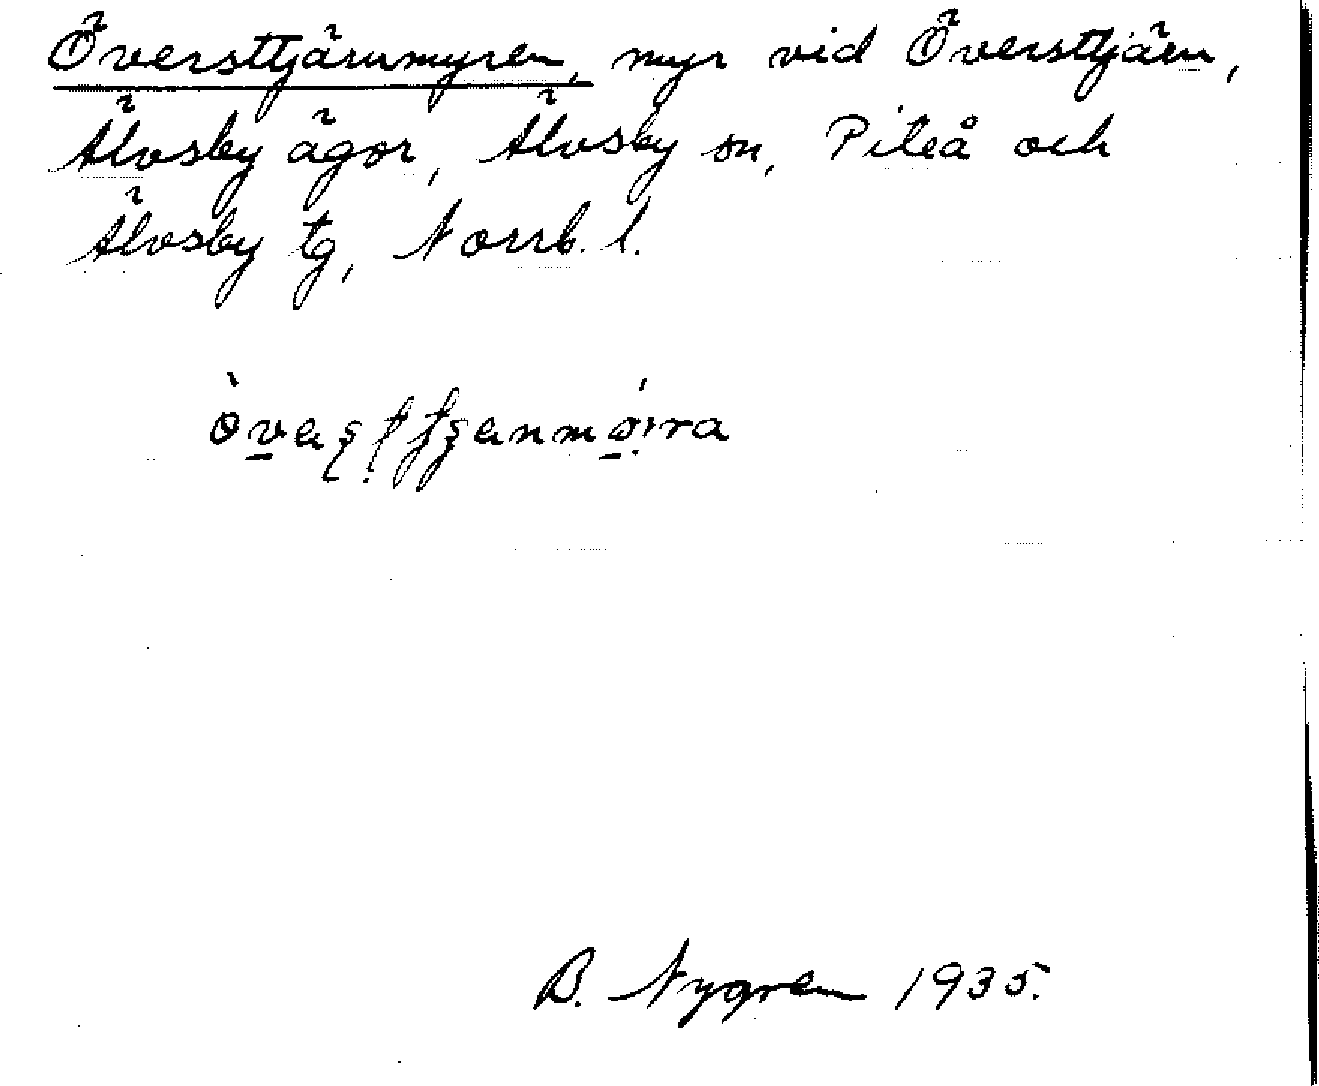 Översttjärnmyren, myr vid Översttjärn,
Älvsby ägor, Älvsby sn, Piteå och
Älvsby tg, Norrb. l.
B. Nygren 1935.